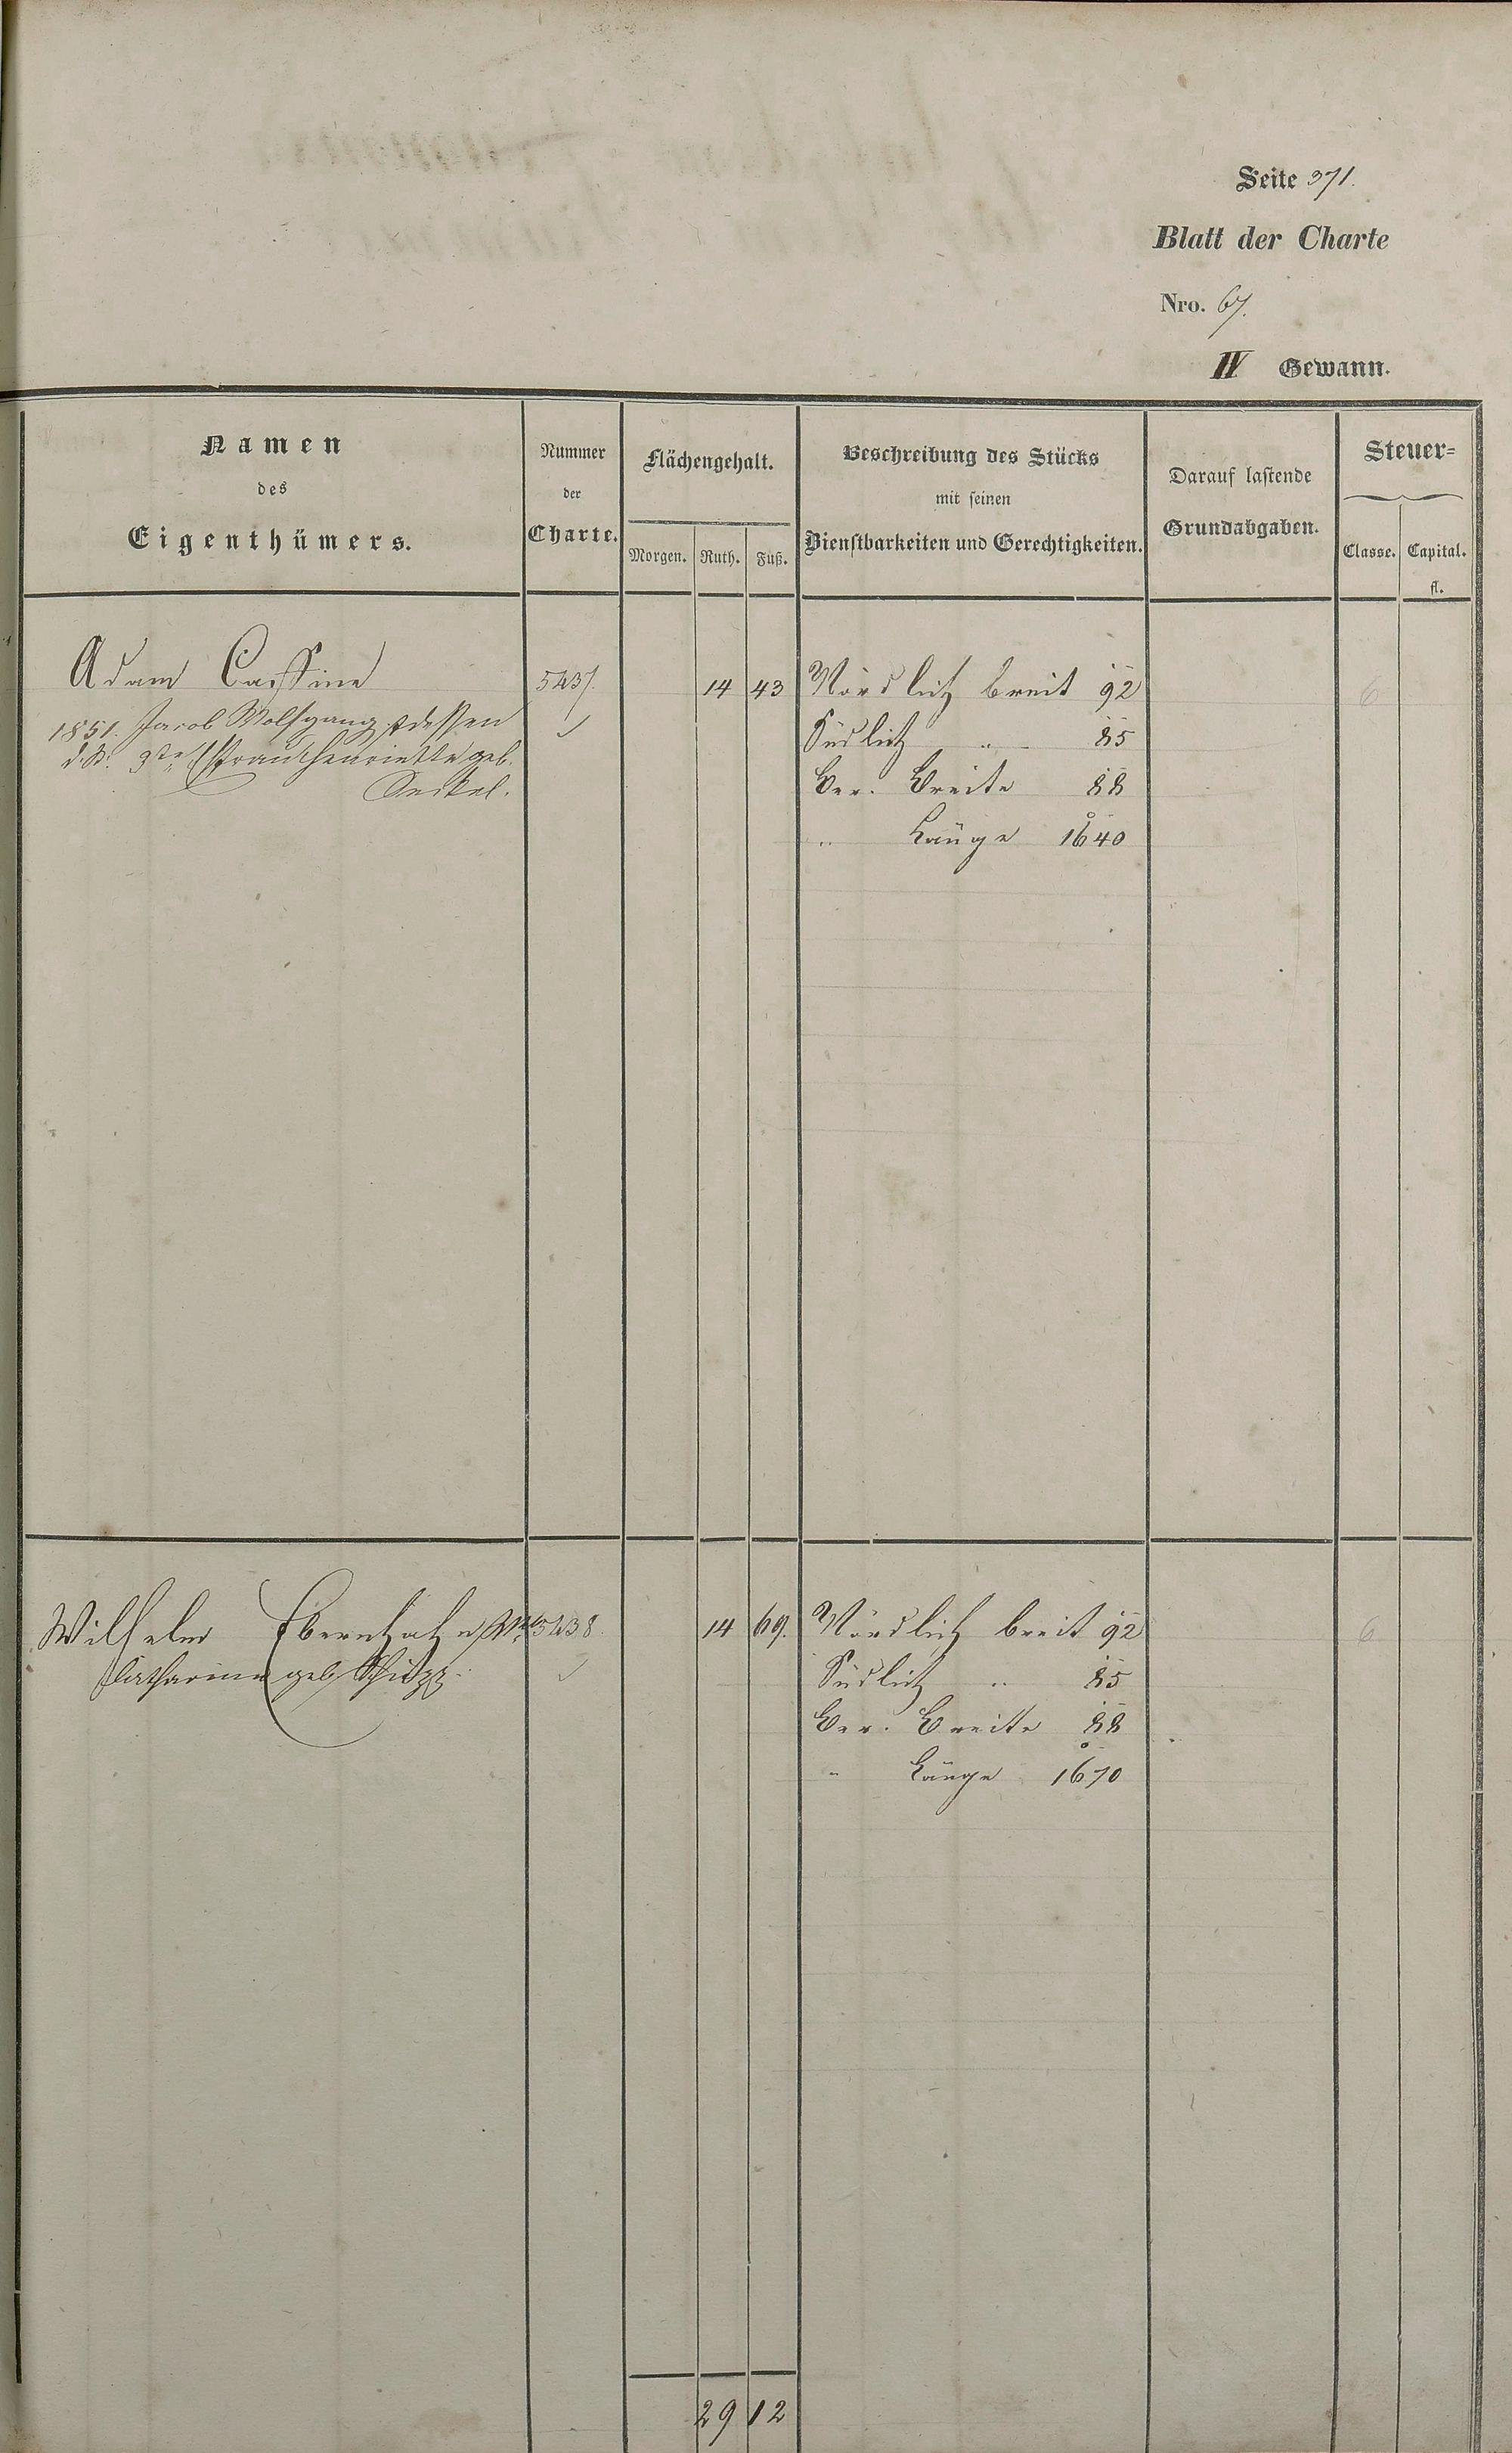 Seite 371.
Blatt der Charte
Nro. 67.
IV Gewann.
Namen
des
Eigenthümers.
Nummer
der
Charte.
Flächengehalt.
Morgen. Ruth. Fuß.
Beschreibung des Stücks
mit seinen
Dienstbarkeiten und Gerechtigkeiten.
Darauf lastende
Grundabgaben.
Steuer=
Classe. Capital.
fl.
Adam Cassine 5437. 14 43 Nördlich breit 92 6
1851. Jacob Wolfgang, dessen Südlich " 85
3te Frau Henriette geb. Ber. Breite 88
Seckel. " Länge 1640
Wilhelm 5438. 14 69. Nördlich breit 92 6
Catharine geb. Südlich " 85
Ber. Breite 88
" Länge 1670
29 12